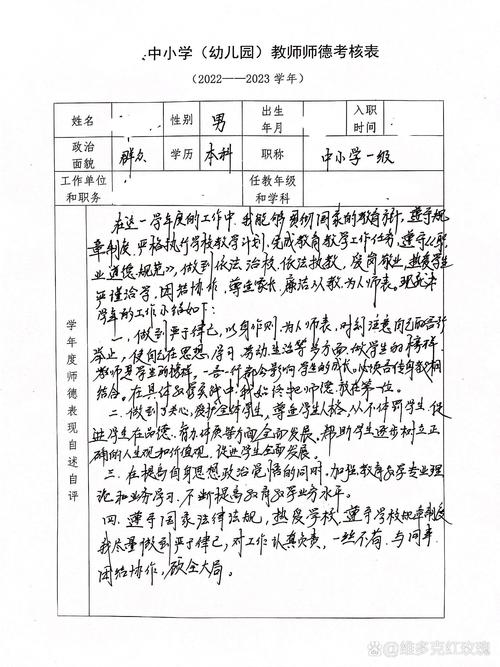 中小学（幼儿园）教师师德考核表
（2022——2023 学年）
姓名 性别 男 出生年月 入职时间
政治面貌 群众 学历 本科 职称 中小学一级
工作单位和职务 任教年级和学科
学年度师德表现自述自评
在这一学年度的工作中，我能够贯彻国家的教育方针，遵守规
章制度，严格执行学校教学计划，完成教育教学工作任务，遵守《职
业道德规范》，做到依法治校，依法执教，爱岗敬业，热爱学生
严谨治学，团结协作，尊重家长，廉洁从教，为人师表。现就本
学年的工作小结如下：
一、做到严于律己，以身作则，为人师表，时刻注意自己的言行
举止，使自己在思想、学习、劳动、生活等多方面，做学生的榜样。
教师是学生的榜样，一言一行都会影响学生的成长。必须言传身教相
结合。在具体教育实践中，我始终把师德放在第一位。
二、做到了关心，爱护全体学生，尊重学生人格，从不体罚学生，促
进学生在品德、智力、体质等方面全面发展。帮助学生逐步树立正
确的人生观和价值观，促进学生全面发展。
三、在提高自身思想政治觉悟的同时，加强教育教学专业理
论和业务学习，不断提高教育教学业务水平。
四、遵守国家法律法规，热爱学校，遵守学校规章制度
我尽量做到严于律己，对工作认真负责，一丝不苟，与同事
团结协作，顾全大局。
@维多克红玫瑰